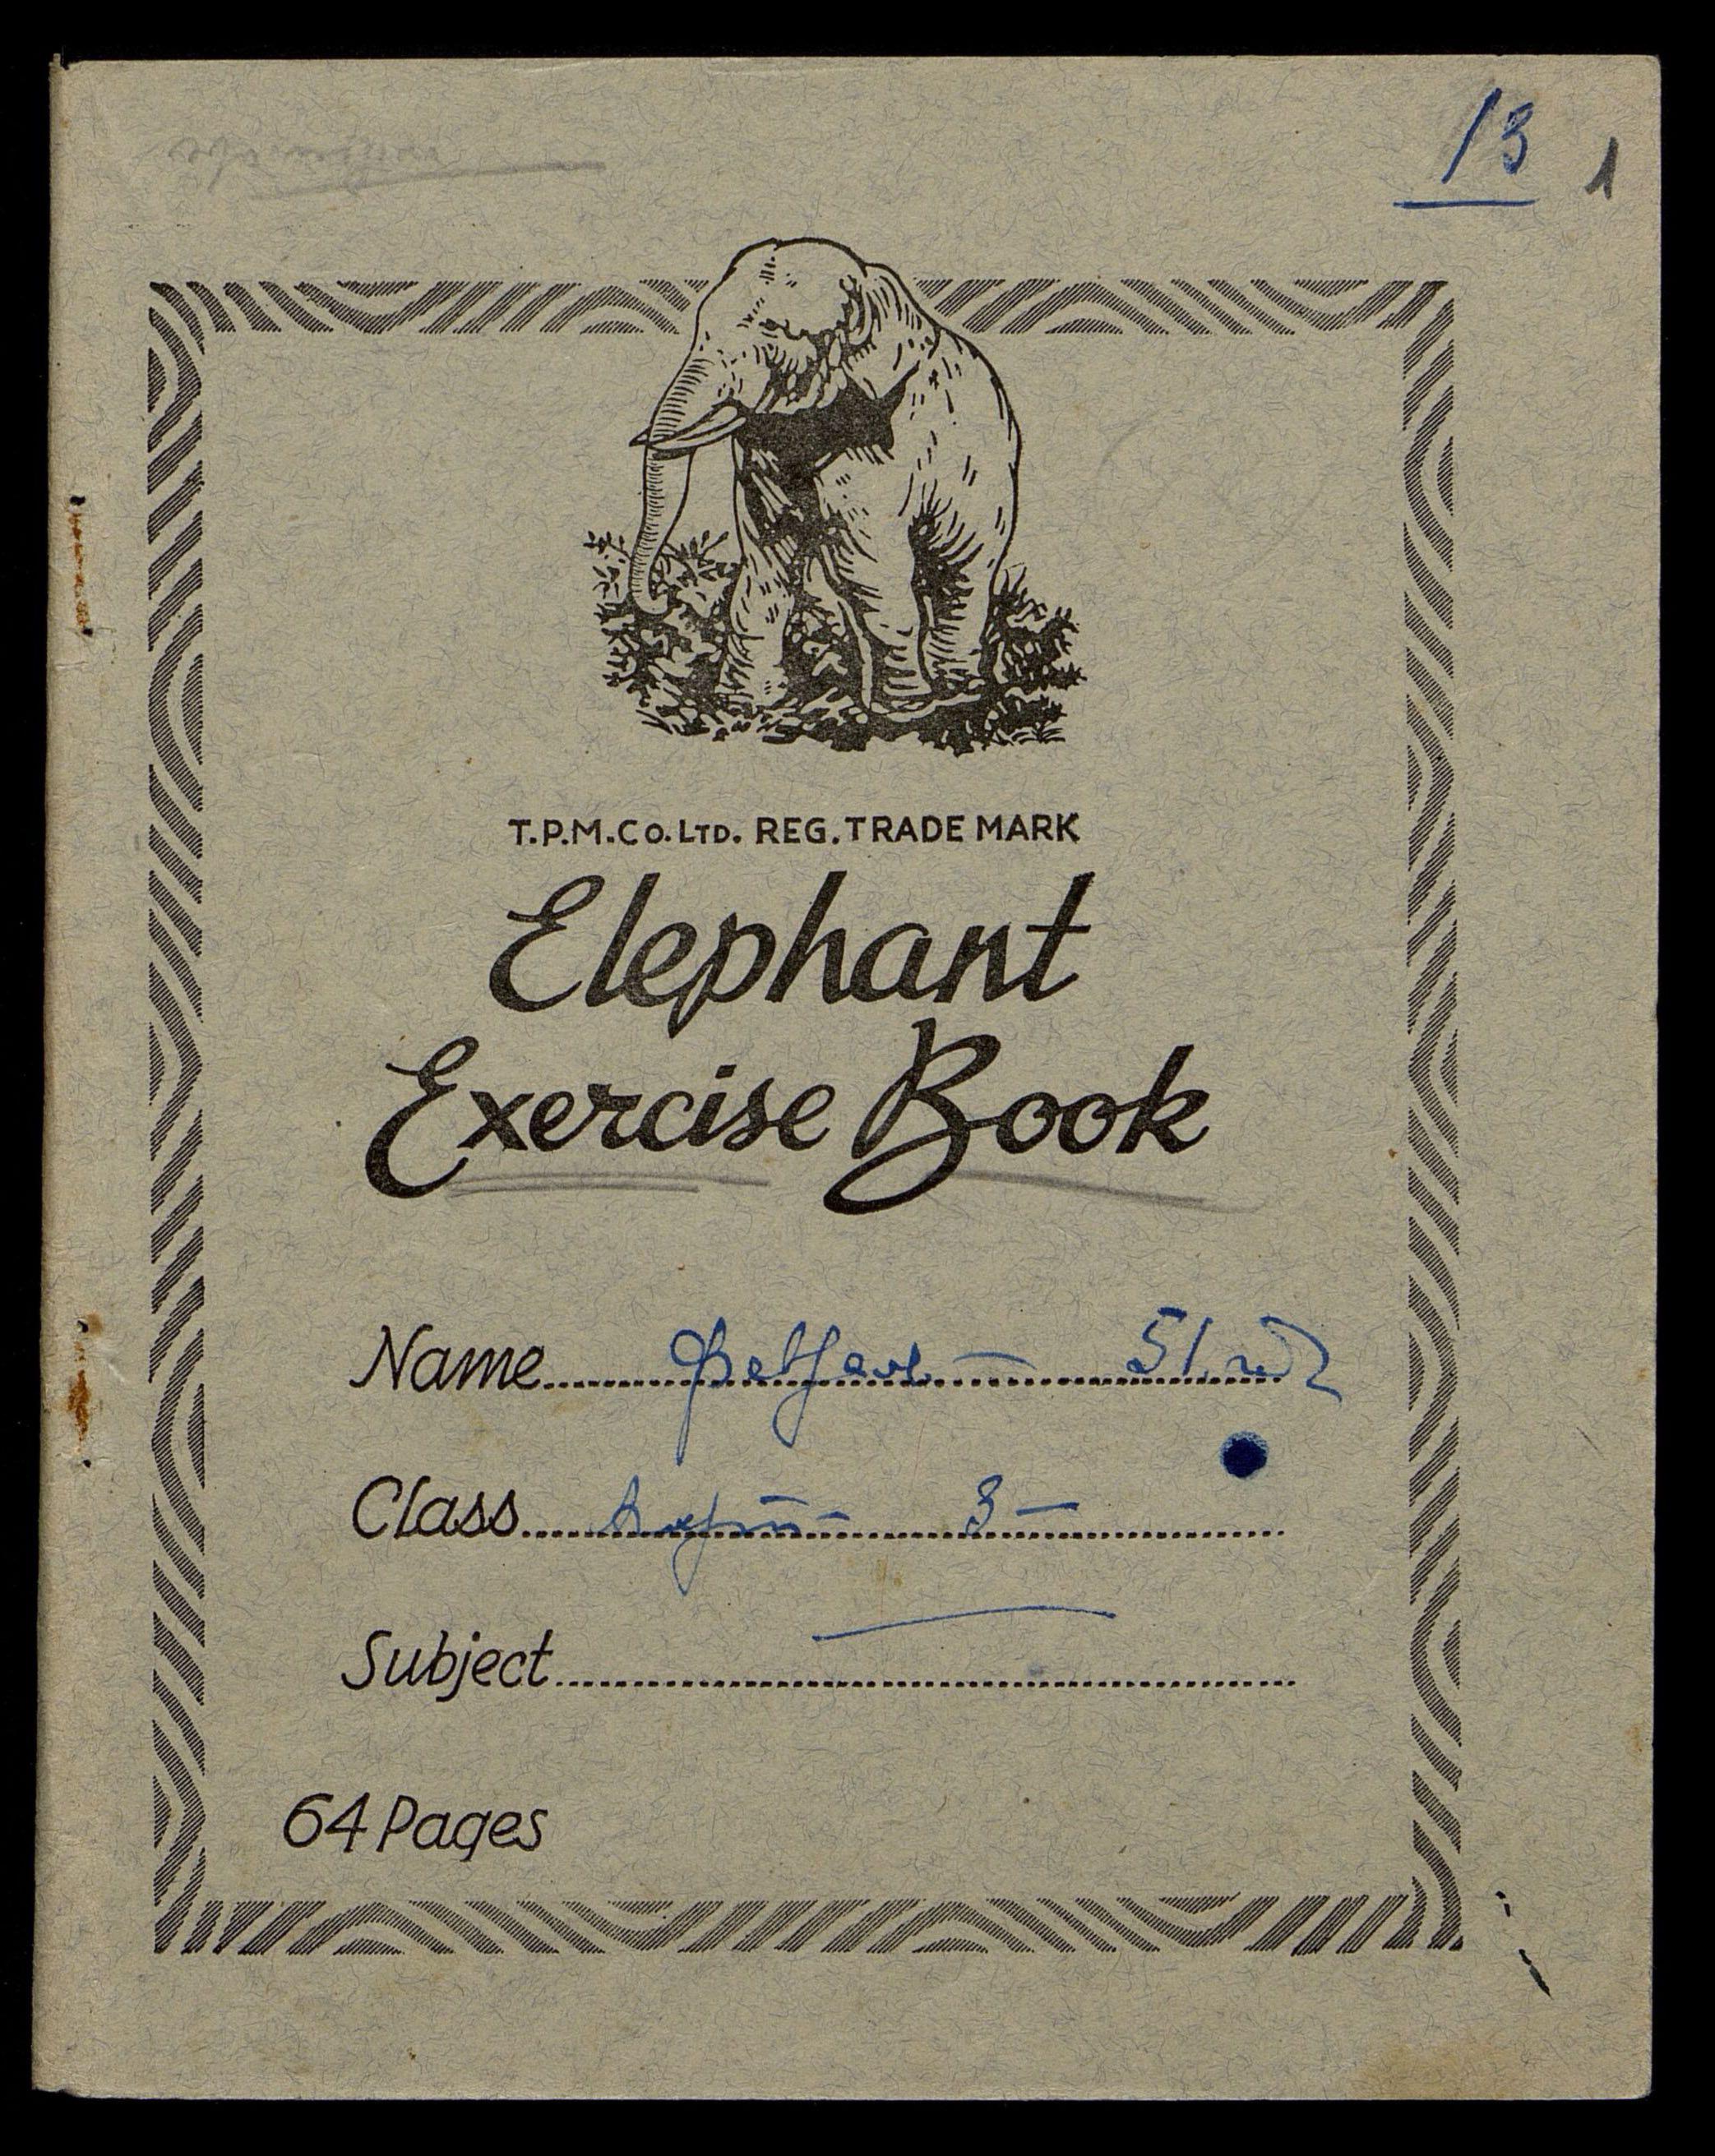 13
1
T.P.M.Co.LTD. REG. TRADE MARK
Elephant
Exercise Book
Name 51.
Class 3 —
Subject
64 Pages